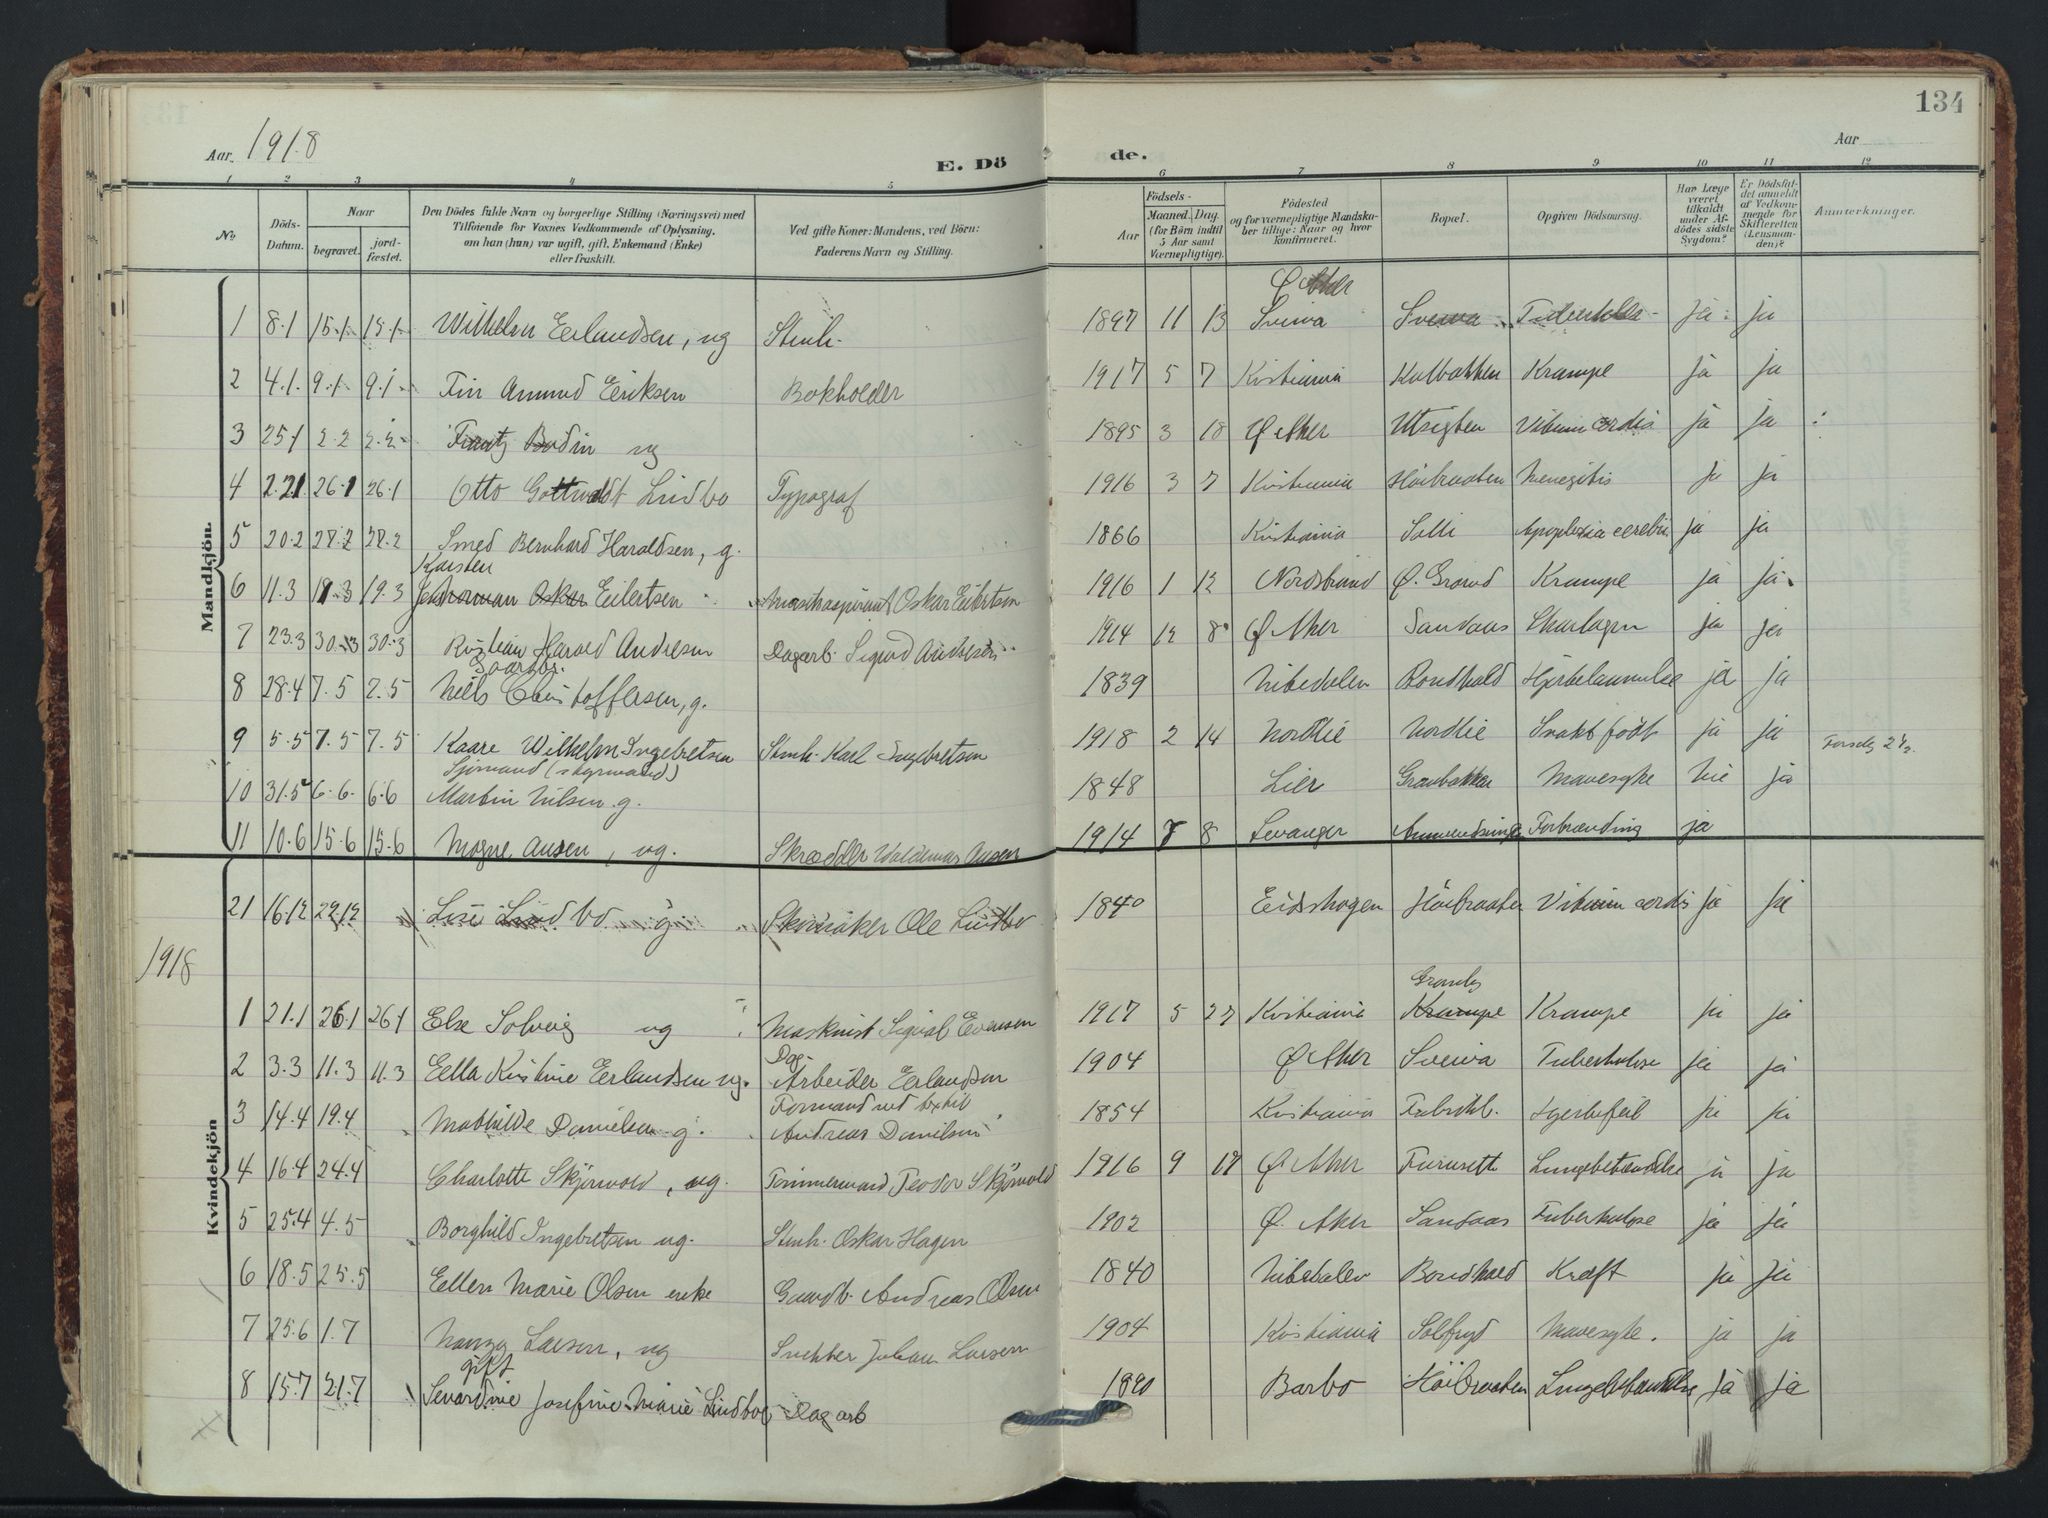 134
Aar. 1918
E. Dö de.
Aar
1 2 3 4 5 6 7 8 9 10 11 12
No. Döds-Datum. Naar begravet. jordfæstet. Den Dödes fulde Navn og borgerlige Stilling (Næringsvei) med Tilföiende for Voxnes Vedkommende af Oplysning, om han (hun) var ugift, gift, Enkemand (Enke) eller fraskilt. Ved gifte Koner: Mandens, ved Börn: Faderens Navn og Stilling. Födsels- Aar Maaned. Dag. (for Börn indtil 5 Aar samt Værnepligtige). Födested og for værnepligtige Mandskaber tillige: Naar og hvor konfirmeret. Bopæl. Opgiven Dödsaarsag. Har Læge været tilkaldt under Afdödes sidste Sygdom? Er Dödsfaldet anmeldt af Vedkommende for Skifteretten (Lensmanden)? Anmerkninger.
Mandkjön.
1 8.1 15.1 15.1 Wilhelm Erlandsen, ug Stenh. 1897 11 13 Ö Aker ja ja
2 4.1. 9.1 9.1 Fin Amund Eriksen Bokholder 1917 5 7 Kristiania Kalbakken Krampe ja ja
3 25.1 2.2 2.2 Frantz Bodin ug 1895 3 18 Ö Aker Utsigten Vitium cordis ja ja
4 2.21 26.1 26.1 Otto Gottwaldt Lindbo Typograf 1916 3 7 Kristiania Höibraaten Menegitis ja ja
5 20.2 28.2 28.2 Smed Bernhard Haraldsen, g. 1866 Kristiania Solli Apoplexia cerebri ja ja
6 11.3 19.3 Karsten Oskar Eilertsen Oskar Eilertsen 1916 1 12 Nordstrand Ö. Grorud Krampe ja ja
7 23.3 30.3 30.3 Kristian Harald Andresen Dagarb. Sigurd Andresen 1914 12 8 Ö Aker Sandaas Skarlagen ja ja
8 28.4 7.5 7.5 Gaarbr. Niels Christoffersen, g. 1839 Nitedalen Hjertelammelse ja ja
9 5.5 7.5 7.5 Kaare Wilhelm Ingebretsen Stenh. Karl Ingebretsen 1918 2 14 Nordlie Nordlie Svakt födt ja ja
10 31.5 6.6. 6.6 Sjömand (styrmand) Martin Nilsen g. 1848 Lier Granbakken Mavesyke Nei ja
11 10.6 15.6 15.6 Mogne Ansen, ug. Skrædder Waldemar Ansen 1914 8 Levanger Forbrænding ja
21 16.12 22.12 Lise Lindbo g Skomaker Ole Lindbo 1840 Eidskogen Höibraaten Vitium cordis ja ja
1918
Kvindekjön
1 21.1 26.1 26.1 Else Solveig ug Maskinist Sigval Evensen 1917 5 27 Kristiania Krampe Krampe ja ja
2 3.3 11.3 11.3 Ella Kristine Erlandsen ug. Dag-Arbeider Erlandsen 1904 Ö Aker Tuberkulose ja ja
3 14.4 19.4 Mathilde Danielsen g. Formand ved Andreas Danielsen 1854 Kristiania Hjertefeil ja ja
4 16.4 24.4 Charlotte Skjörvold, ug. Tömmermand Teodor Skjörvold 1916 9 Ö Aker Furusett Lungebetændelse ja ja
5 25.4 4.5 Borghild Ingebretsen ug. Stenh. Oskar Hagen 1902 Ö. Aker Sandaas Tuberkulose ja ja
6 18.5 25.5 Ellen Marie Olsen enke Gaardb. Andreas Olsen 1840 Nitedalen Kræft ja ja
7 25.6 1.7 Larsen, ug Snekker Johan Larsen 1904 Kristiania Mavesyke. ja ja
8 15.7 21.7 gift Sevardine Josefine Marie Lindbo Dagarb 1890 Barbo Höibraaten Lungebetændelse ja ja